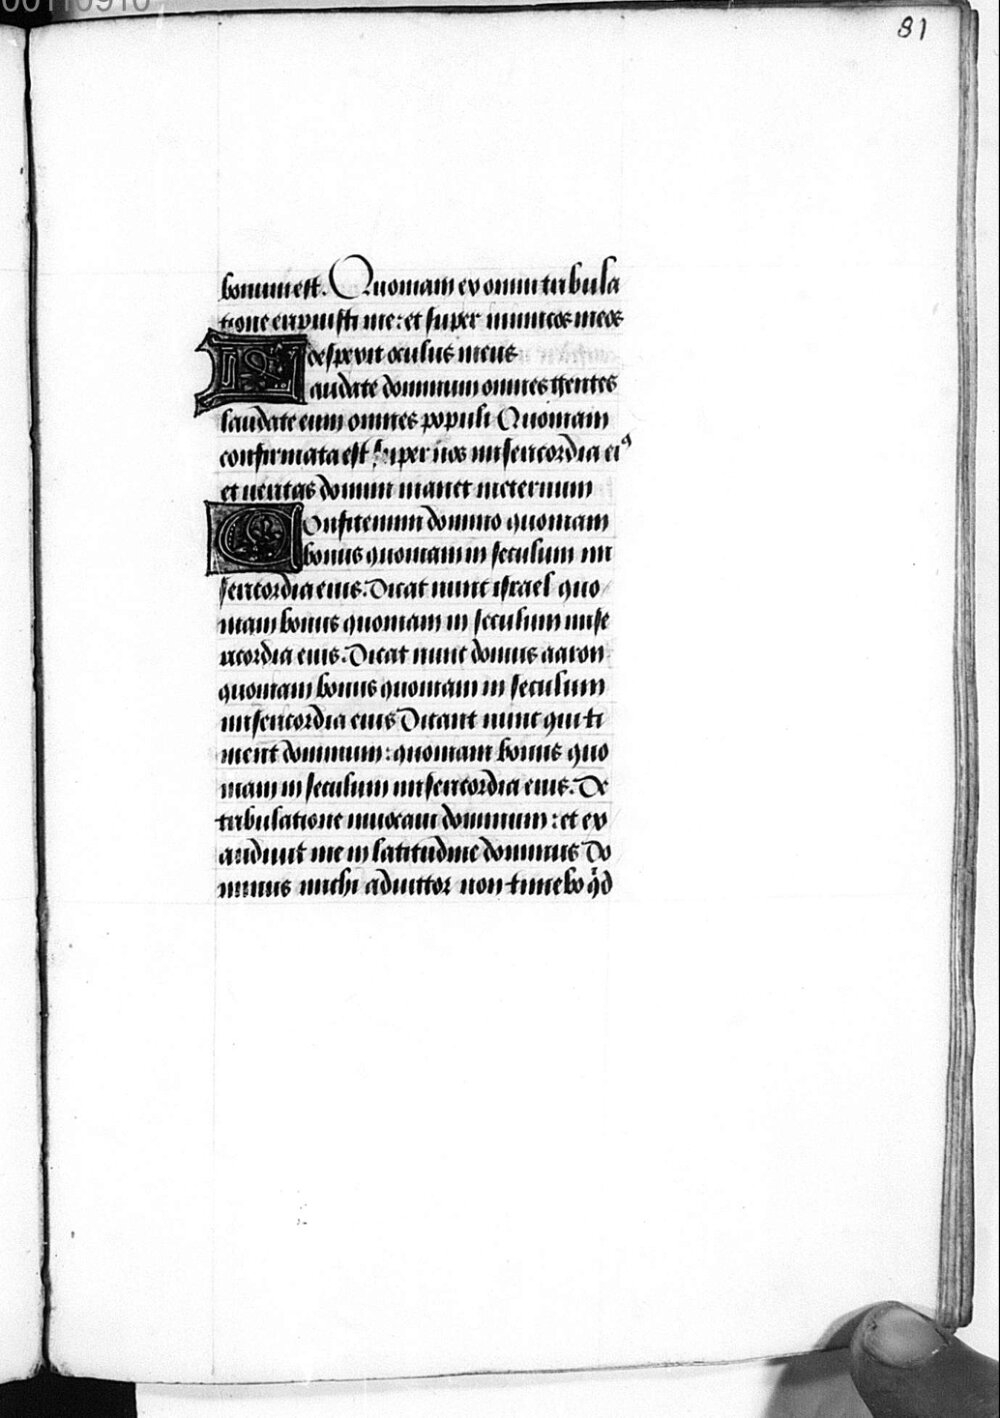 00110910
81
bonum est. Quoniam ex omni tribula
tione eripuisti me: et super inimicos meos
despexit oculus meus
Laudate dominum omnes gentes
laudate eum omnes populi Quoniam
confirmata est super nos misericordia eiꝰ
et veritas domini manet ineternum
Confitemini domino quoniam
bonus quoniam in seculum mi
sericordia eius. Dicat nunc israel quo
niam bonus quoniam in seculum mise
ricordia eius. Dicat nunc domus aaron
quoniam bonus quoniam in seculum
misericordia eius Dicant nunc qui ti
ment dominum: quoniam bonus quo
niam in seculum misericordia eius. De
tribulatione invocavi dominum: et ex
audivit me in latitudine dominus Do
minus michi adiutor non timebo qd